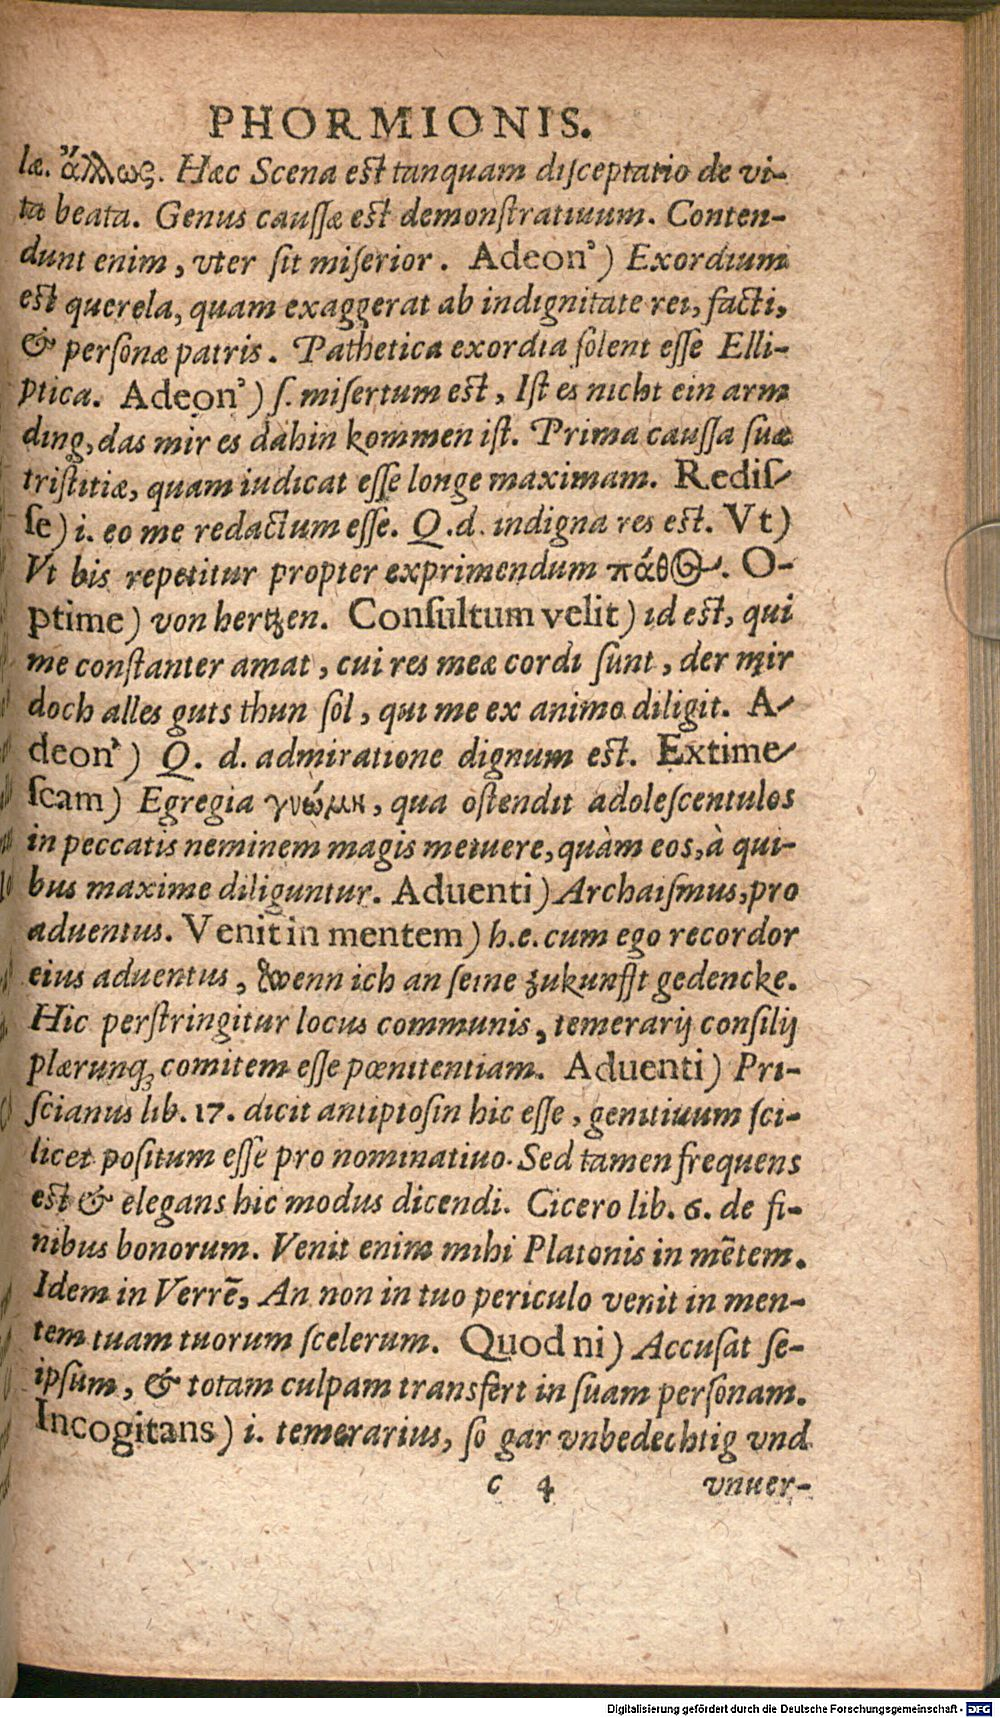 PHORMIONIS.
læ. ἄλλως. Hæc Scena est tanquam disceptatio de vi-
ta beata. Genus caussæ est demonstratiuum. Conten-
dunt enim, vter sit miserior. Adeon') Exordium
est querela, quam exaggerat ab indignitate rei, facti,
& personæ patris. Pathetica exordia solent esse Elli-
ptica. Adeon') s. misertum est, Ist es nicht ein arm
ding, das mir es dahin kommen ist. Prima caussa suæ
tristitiæ, quam iudicat esse longe maximam. Redis-
se) i. eo me redactum esse. Q.d. indigna res est. Vt)
Vt bis repetitur propter exprimendum πάθος. O-
ptime) von hertzen. Consultum velit) id est, qui
me constanter amat, cui res meæ cordi sunt, der mir
doch alles guts thun sol, qui me ex animo diligit. A-
deon') Q. d. admiratione dignum est. Extime-
scam) Egregia γνώμη, qua ostendit adolescentulos
in peccatis neminem magis metuere, quàm eos, à qui-
bus maxime diliguntur. Aduenti) Archaismus, pro
aduentus. Venit in mentem) h.e. cum ego recordor
eius aduentus, wenn ich an seine zukunfft gedencke.
Hic perstringitur locus communis, temerarij consilij
plærunq; comitem esse pœnitentiam. Aduenti) Pri-
scianus lib. 17. dicit antiptosin hic esse, genitiuum sci-
licet positum esse pro nominatiuo. Sed tamen frequens
est & elegans hic modus dicendi. Cicero lib. 6. de fi-
nibus bonorum. Venit enim mihi Platonis in mētem.
Idem in Verrē, An non in tuo periculo venit in men-
tem tuam tuorum scelerum. Quod ni) Accusat se-
ipsum, & totam culpam transfert in suam personam.
Incogitans) i. temerarius, so gar vnbedechtig vnd
c 4 vnuer-
Digitalisierung gefördert durch die Deutsche Forschungsgemeinschaft - DFG